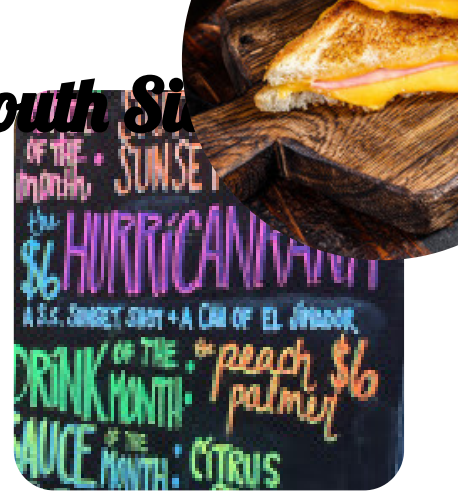 outh Si
OF THE
month SUNSET
the
$6 HURRICANRANA
A S.S. SUNSET SHOT + A CAN OF EL JIMADOR
DRINK OF THE MONTH: the peach palmer $6
SAUCE OF THE MONTH: CITRUS